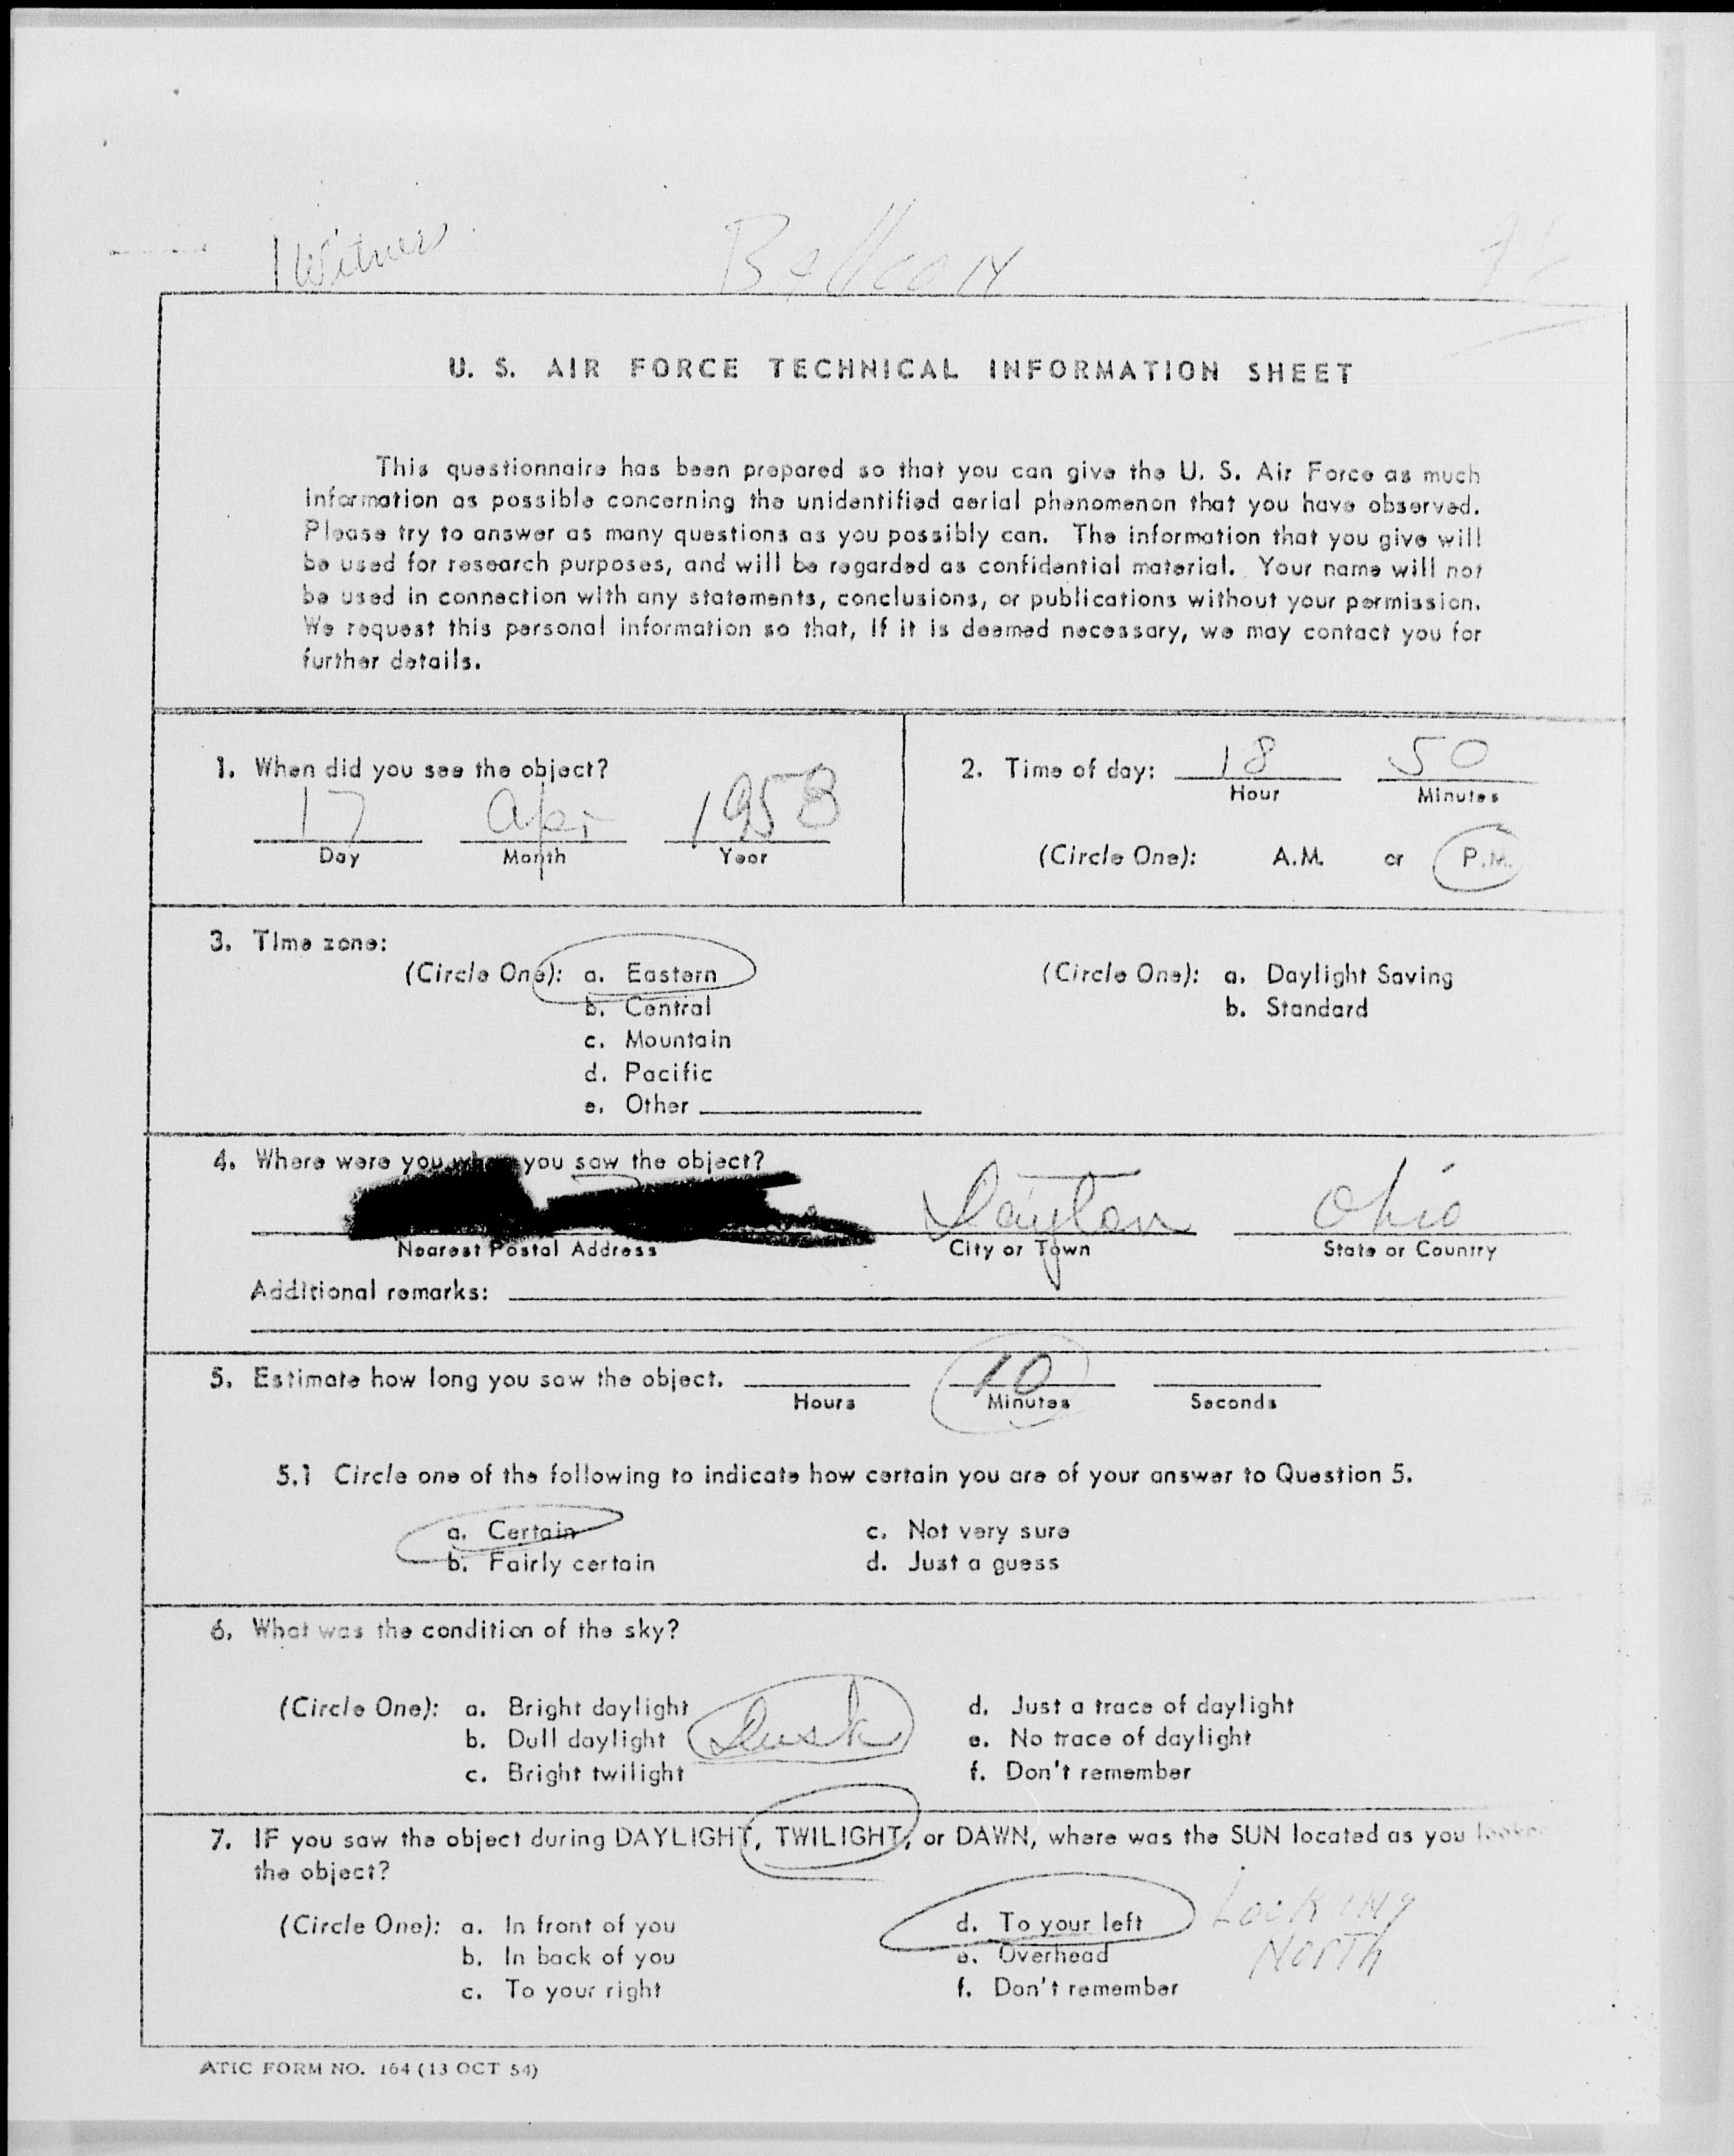 1 Witness Balloon
U. S. AIR FORCE TECHNICAL INFORMATION SHEET
This questionnaire has been prepared so that you can give the U. S. Air Force as much
information as possible concerning the unidentified aerial phenomenon that you have observed.
Please try to answer as many questions as you possibly can. The information that you give will
be used for research purposes, and will be regarded as confidential material. Your name will not
be used in connection with any statements, conclusions, or publications without your permission.
We request this personal information so that, if it is deemed necessary, we may contact you for
further details.
1. When did you see the object?
17 Apr 1958
Day Month Year
2. Time of day: 18 50
Hour Minutes
(Circle One): A.M. or P.M.
3. Time zone:
(Circle One): a. Eastern
b. Central
c. Mountain
d. Pacific
e. Other
(Circle One): a. Daylight Saving
b. Standard
4. Where were you when you saw the object?
Dayton Ohio
Nearest Postal Address City or Town State or Country
Additional remarks:
5. Estimate how long you saw the object. 10
Hours Minutes Seconds
5.1 Circle one of the following to indicate how certain you are of your answer to Question 5.
a. Certain c. Not very sure
b. Fairly certain d. Just a guess
6. What was the condition of the sky?
(Circle One): a. Bright daylight d. Just a trace of daylight
b. Dull daylight Dusk e. No trace of daylight
c. Bright twilight f. Don't remember
7. IF you saw the object during DAYLIGHT, TWILIGHT, or DAWN, where was the SUN located as you
the object?
(Circle One): a. In front of you d. To your left Looking
b. In back of you e. Overhead North
c. To your right f. Don't remember
ATIC FORM NO. 164 (13 OCT 54)